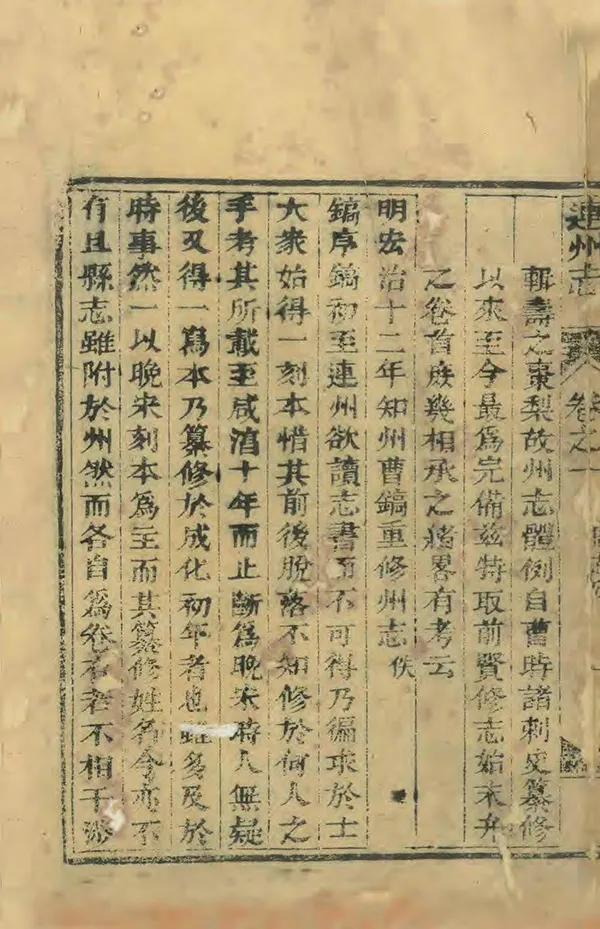 連州志 卷之一
輯壽之棗梨故州志體例自曹時諸刺史纂修
以來至今最為完備茲特取前賢修志始末弁
之卷首庻幾相承之緒畧有考云
明宏治十二年知州曹鎬重修州志佚
鎬序鎬初至連州欲讀志書而不可得乃徧求於士
大家始得一刻本惜其前後脫落不知修於何人之
手考其所載至咸淳十年而止斷為晚宋時人無疑
後又得一寫本乃纂修於成化初年者也雖多及於
時事然一以晚宋刻本為主而其纂修姓名今亦不
存且縣志雖附於州然而各自為卷若不相干涉